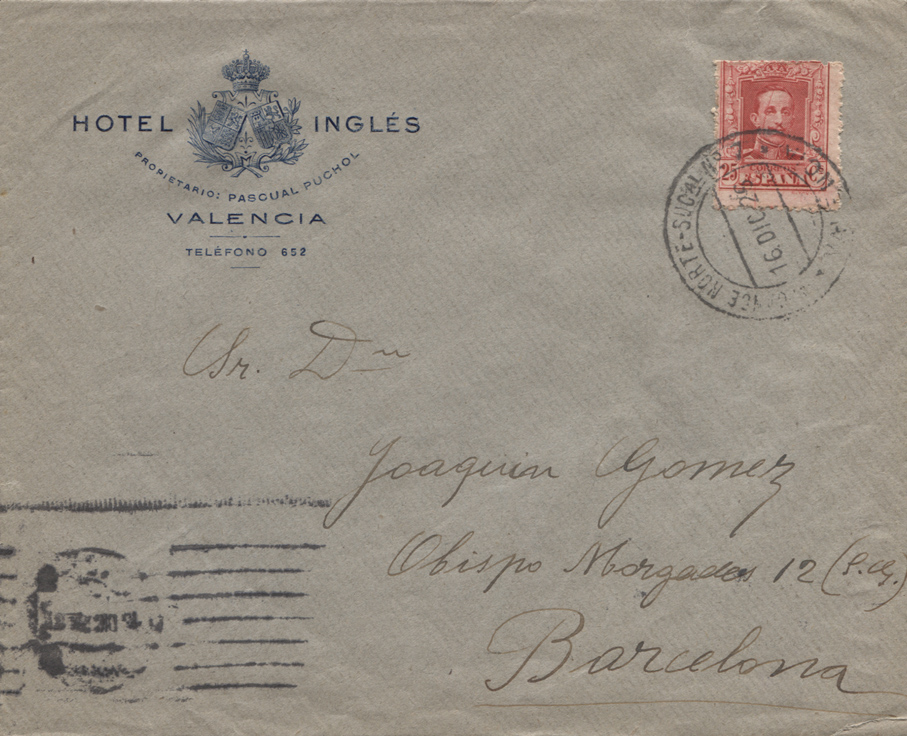 HOTEL INGLÉS
PROPIETARIO: PASCUAL PUCHOL
VALENCIA
TELÉFONO 652
25
16 DIC 26
NORTE-SUCAL Nº
Sr. Dn
Joaquin Gomez
Obispo Morgades 12 (S. G.)
Barcelona